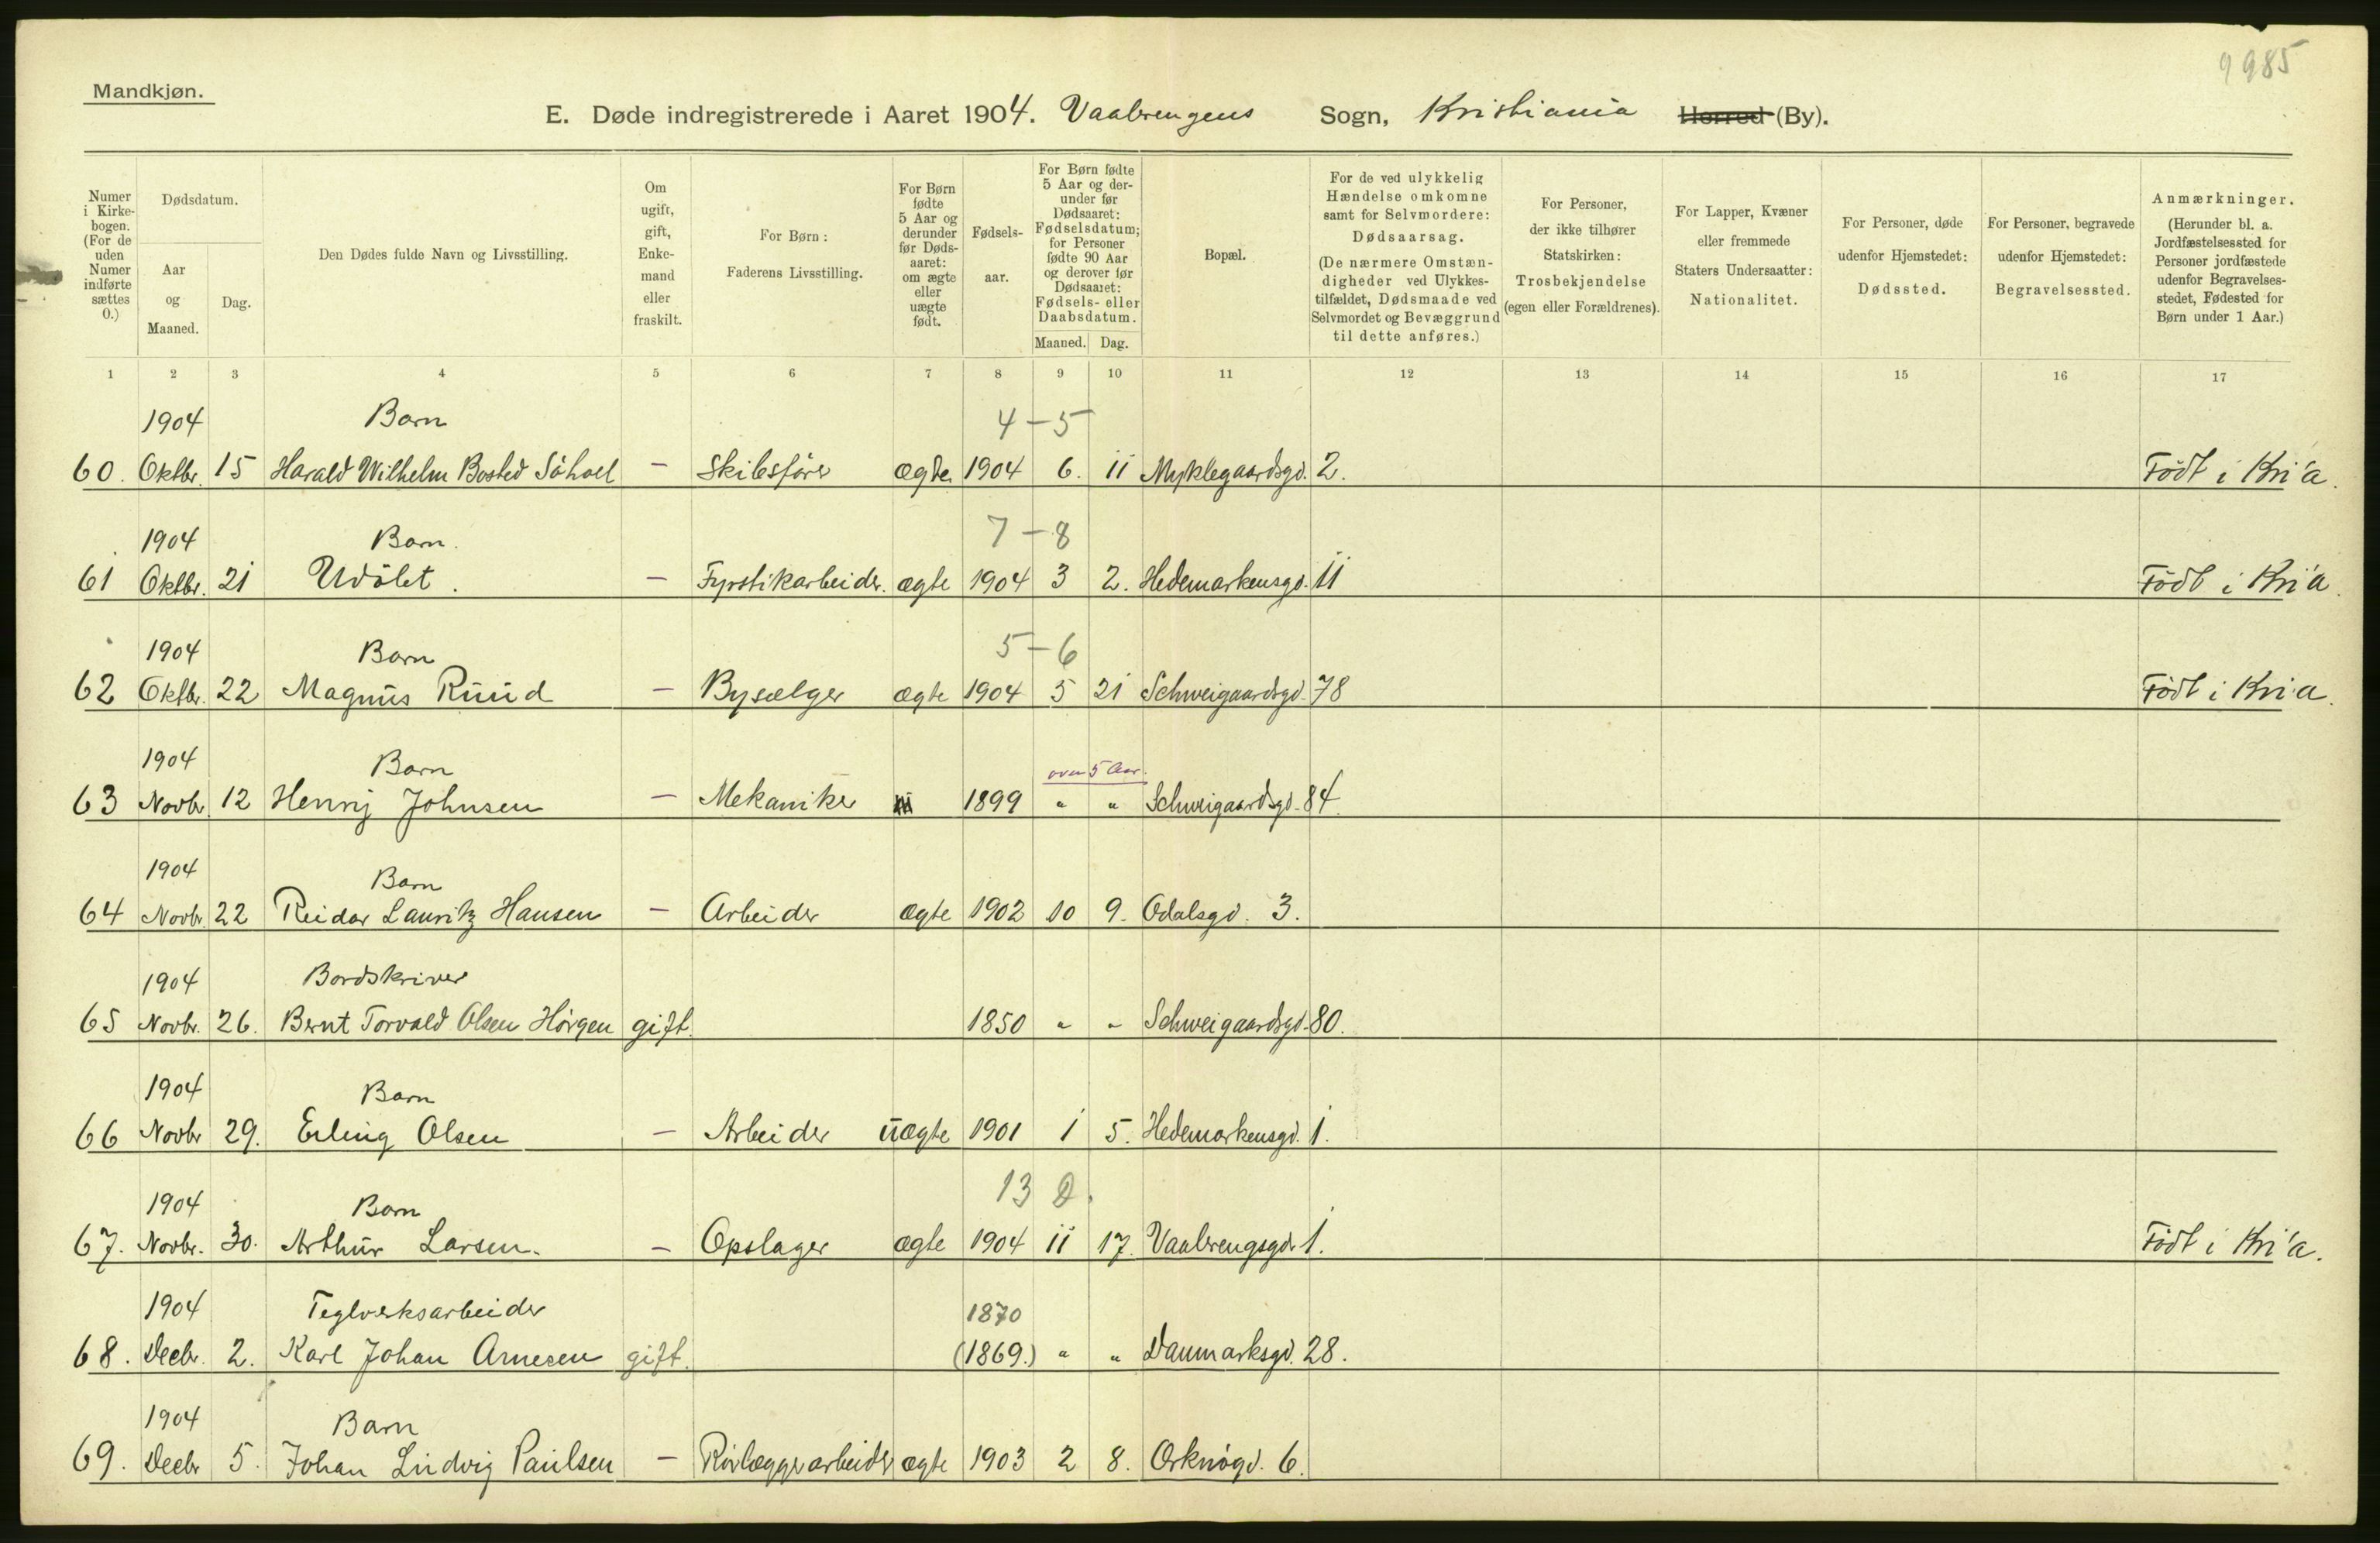 9985
Mandkjøn.
E. Døde indregistrerede i Aaret 1904. Vaalerengens Sogn, Kristiania Herred (By).
Numer i Kirkebogen. (For de uden Numer indførte sættes 0.)
Dødsdatum.
Aar og Maaned.
Dag.
Den Dødes fulde Navn og Livsstilling.
Om ugift, gift, Enkemand eller fraskilt.
For Børn: Faderens Livsstilling.
For Børn fødte 5 Aar og derunder før Dødsaaret: om ægte eller uægte født.
Fødselsaar.
For Børn fødte 5 Aar og derunder før Dødsaaret: Fødselsdatum; for Personer fødte 90 Aar og derover før Dødsaaret: Fødsels- eller Daabsdatum.
Maaned. Dag.
Bopæl.
For de ved ulykkelig Hændelse omkomne samt for Selvmordere: Dødsaarsag. (De nærmere Omstændigheder ved Ulykkestilfældet, Dødsmaade ved Selvmordet og Bevæggrund til dette anføres.)
For Personer, der ikke tilhører Statskirken: Trosbekjendelse (egen eller Forældrenes).
For Lapper, Kvæner eller fremmede Staters Undersaatter: Nationalitet.
For Personer, døde udenfor Hjemstedet: Dødssted.
For Personer, begravede udenfor Hjemstedet: Begravelsessted.
Anmærkninger. (Herunder bl. a. Jordfæstelsessted for Personer jordfæstede udenfor Begravelsesstedet, Fødested for Børn under 1 Aar.)
1 2 3 4 5 6 7 8 9 10 11 12 13 14 15 16 17
1904 Barn 4-5
60. Oktbr. 15 Harald Wilhelm Bosted Såhoel - Skibsfører ægte 1904 6. 11 Myklegaardsgd. 2. Född i Kri'a.
1904 Barn. 7-8
61 Oktbr. 21 Udöbt. - Fyrstikarbeider. ægte 1904 3 2. Hedemarkensgd. 11 Född i Kri'a.
1904 Barn 5-6
62 Oktbr. 22 Magnus Ruud - Bysælger ægte 1904 5 21 Schweigaardsgd. 78 Född i Kri'a.
1904 Barn over 5 Aar.
63 Novbr. 12 Henrij Johnsen - Mekaniker 1899 " " Schweigaardsgd. 84.
1904 Barn
64 Novbr. 22 Reidar Lauritz Hansen - Arbeider ægte 1902 10 9. Odalsgd. 3.
1904 Bordskriver
65 Novbr. 26. Bernt Torvald Olsen Hörgen gift. 1850 " " Schweigaardsgd. 80.
1904 Barn
66 Novbr 29. Erling Olsen - Arbeider uægte 1901 1 5. Hedemarkensgd. 1.
1904 Barn 13 D.
67. Novbr. 30. Arthur Larsen. - Opslager ægte 1904 11 17. Vaalerengsgd. 1. Född i Kri'a.
1904 Teglverksarbeider 1870
68. Decbr. 2. Karl Johan Arnesen gift. (1869.) " " Danmarksgd. 28.
1904 Barn
69. Decbr 5. Johan Ludvig Paulsen - Rörlæggerarbeider ægte 1903 2 8. Orknögd. 6.